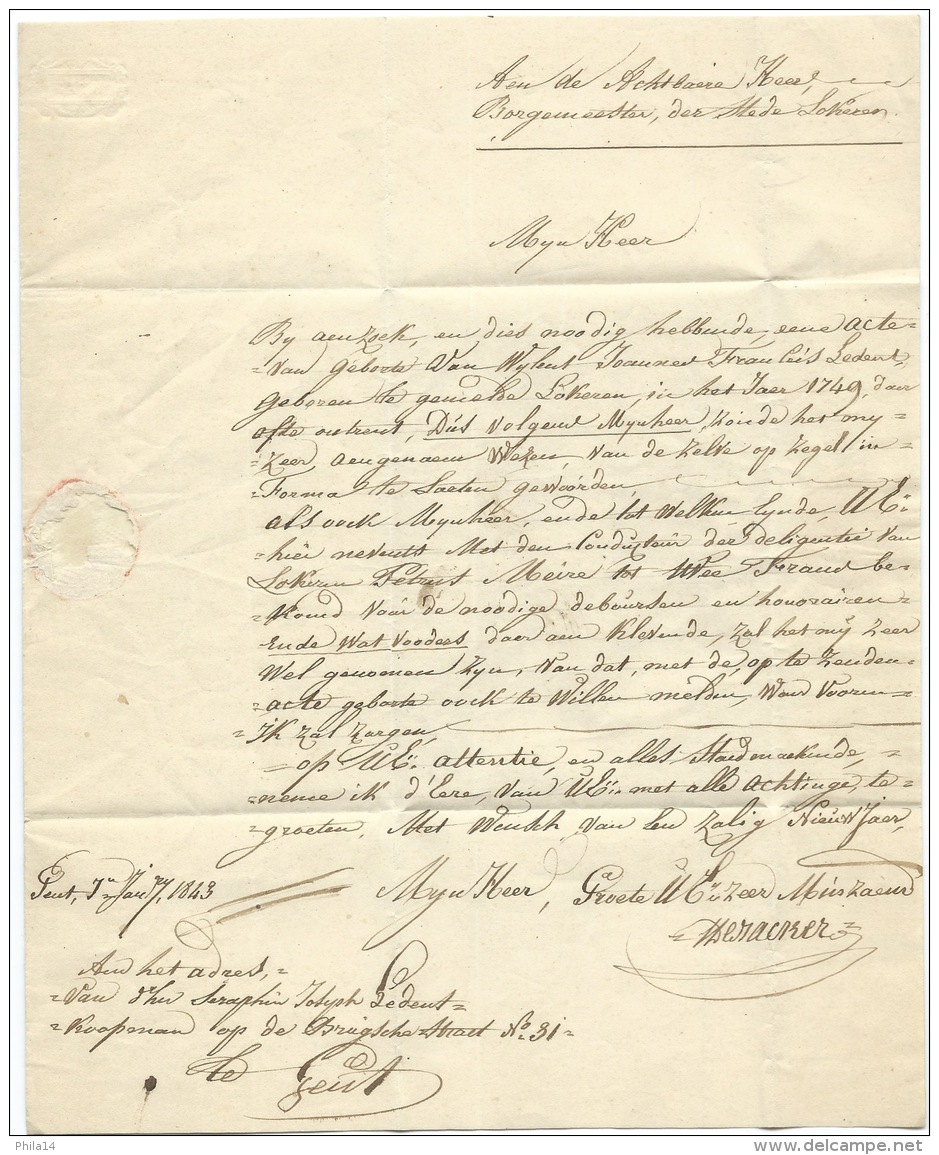 Aen de Achtbaire Heer,
Borgemeester, der Stede Lokeren.
Myn Heer
By aenzoek, en dies noodig hebbende, eene acte
van geborte van Wylent Joannes Francies Ledent,
geboren te gemelde Lokeren, in het Jaer 1749, daer
ofte ontrent, Dus volgens Mynheer, zoude het my
zeer aengenaem wezen, van de zelve op zegel in
Forma te Laeten geworden,
als oock Mynheer, ende tot welken Eynde, UE:
hier nevents Met den Conducteur der deligentie van
Lokeren Petrus Meire tot twee Frans be-
komd voor de noodige deboursen en honorairen
Ende wat voorders daer aen klevende, zal het my zeer
wel genomen zyn, van dat, met de, op te zenden
acte geborte oock te Willen melden, waer vooren
ik zal zorgen,
op UE: attentie, en alles Staedmaekende,
neme ik d'Eere, van UE: met alle achtinge, te
groeten, Met Wensch van een zalig Nieuw Jaer,
Gent, 7n Jary, 1843
Myn Heer, Groete UE: zeer
Aen het adres,
van d'hr Seraphin Joseph Ledent
Koopman op de Brugsche Straet No. 31
te Gent
Phila14
www.delcampe.net